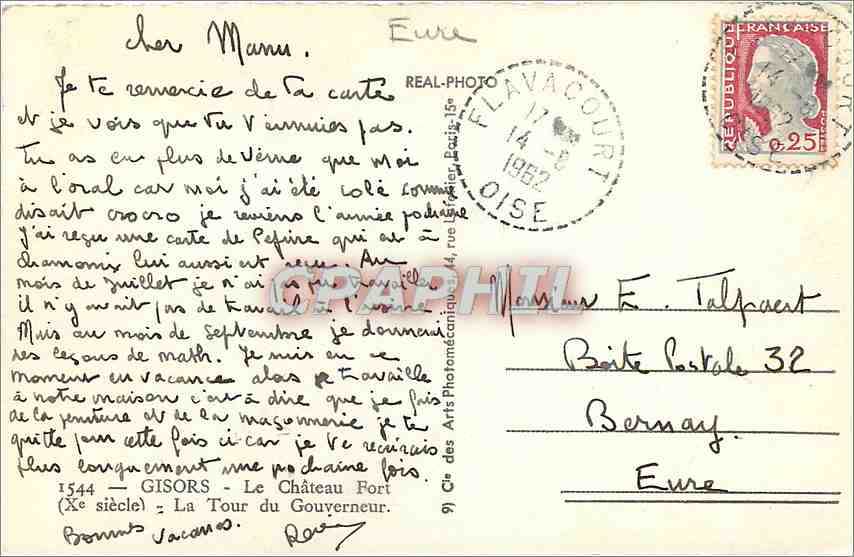 Cher Manu.
Je te remercie de ta carte
et je vois que tu t'ennuies pas.
Tu as eu plus de veine que moi
à l'oral car moi j'ai été collé comme
disait crocro je reviens l'année pochaine
J'ai reçu une carte de qui est à
chamonix lui aussi est reçu. Au
mois de Juillet je n'ai pas pu travailler
il n'y avait pas de travail à l'usine
Mais au mois de Septembre je donnerai
des leçons de math. Je suis en ce
moment en vacance alors je travaille
à notre maison c'est à dire que je fais
de la peinture et de la maçonnerie je te
quitte pour cette fois ci car je te
plus longuement une pochaine fois.
1544 — GISORS - Le Château Fort
(Xe siècle) - La Tour du Gouverneur.
Bonnes vacances.
Eure
REAL-PHOTO
9) Cie des Arts Photomécaniques, 44, rue Letellier, Paris-15e
FLAVACOURT
17
14 -8
1962
OISE
REPUBLIQUE FRANÇAISE
0,25
POSTES
CPARPHIL
Monsieur E. Talpaert
Boite Postale 32
Bernay.
Eure